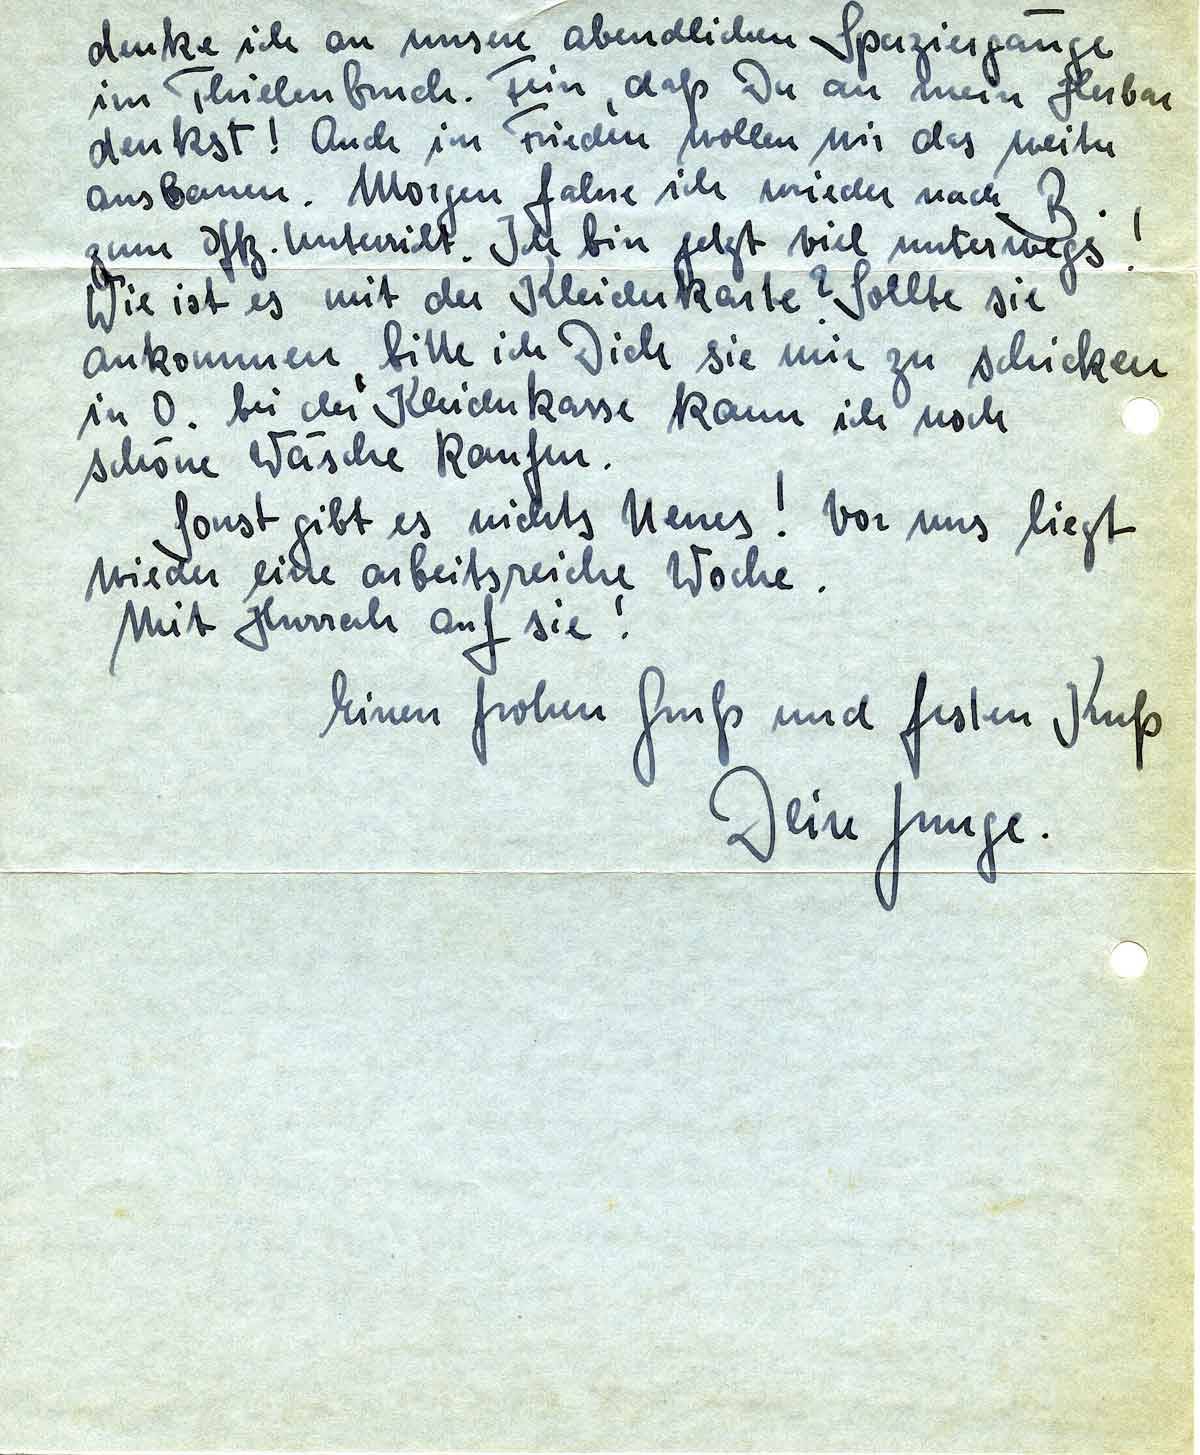 denke ich an unsere abendlichen Spaziergänge
im Thielenbruch. Fein, daß Du an mein Herbar
denkst! Auch im Frieden wollen wir das weiter
ausbauen. Morgen fahre ich wieder nach B.
zum Offz. Unterricht. Ich bin jetzt viel unterwegs!
Wie ist es mit der Kleiderkarte? Sollte sie
ankommen, bitte ich Dich sie mir zu schicken
in O. bei der Kleiderkasse kann ich noch
schöne Wäsche kaufen.
Sonst gibt es nichts Neues! Vor uns liegt
wieder eine arbeitsreiche Woche.
Mit Hurrah auf sie!
Einen frohen Gruß und festen Kuß
Dein Junge.